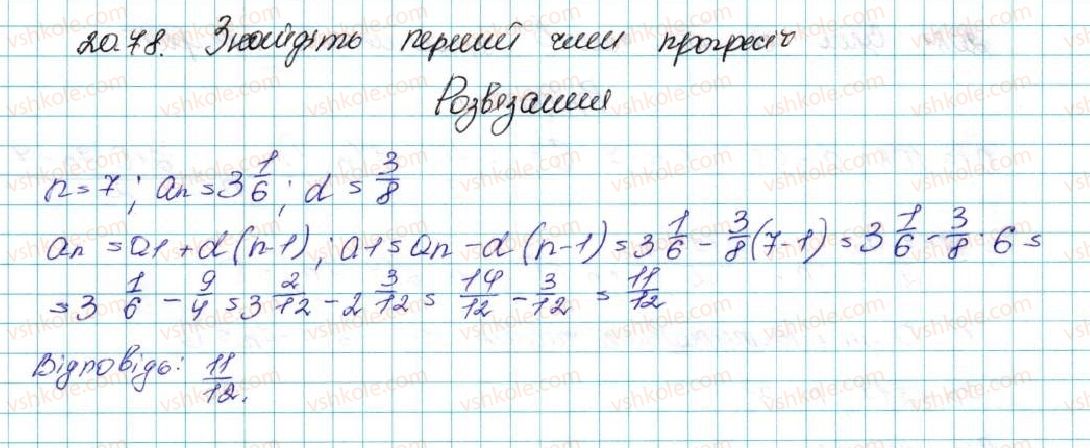 20.78. Знайдіть перший член прогресії
Розв'язання
n = 7; an = 3 1/6; d = 3/8
an = a1 + d(n-1); a1 = an - d(n-1) = 3 1/6 - 3/8 (7-1) = 3 1/6 - 3/8 · 6 =
= 3 1/6 - 9/4 = 3 2/12 - 2 3/12 = 14/12 - 3/12 = 11/12
Відповідь: 11/12.